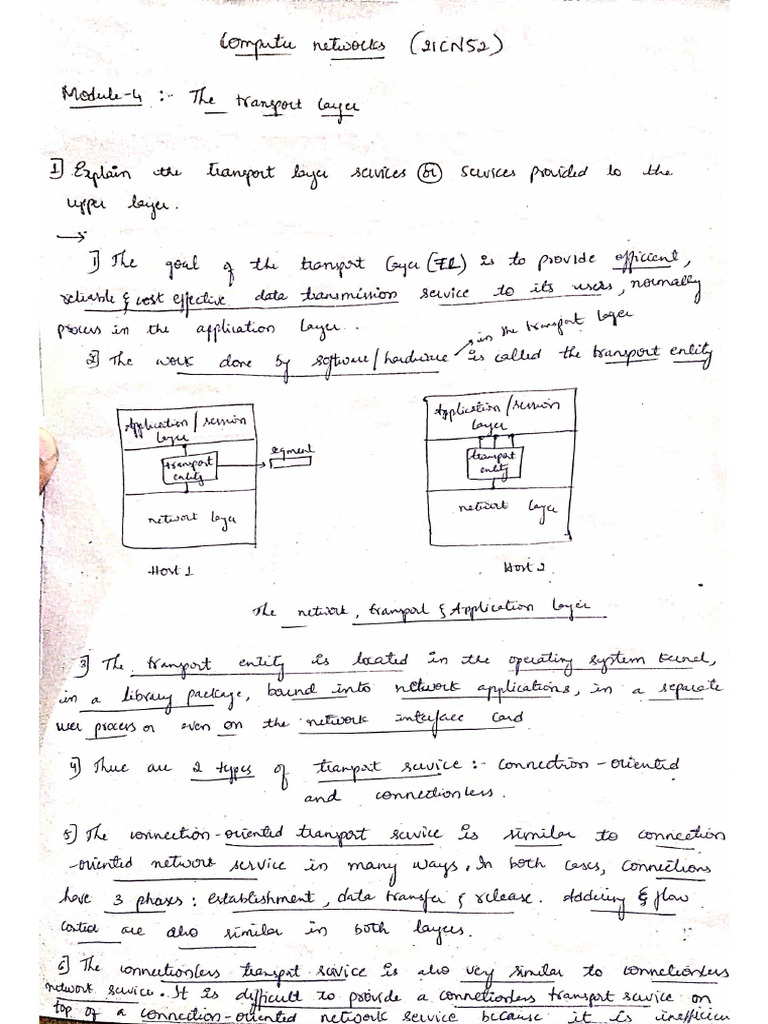 Computer networks (21CN52)
Module-4 :- The transport layer
1] Explain the transport layer services or services provided to the
upper layer.
→
1] The goal of the transport layer (TL) is to provide efficient,
reliable & cost effective data transmission service to its users, normally
process in the application layer.
in the transport layer
2] The work done by software/hardware is called the transport entity
Application/session
layer
transport
entity
segment
network layer
Host 1
Application/session
layer
transport
entity
network layer
Host 2
The network, transport & Application layer
3] The transport entity is located in the operating system kernel,
in a library package, bound into network applications, in a separate
user process or even on the network interface card
4] There are 2 types of transport service :- connection-oriented
and connectionless.
5] The connection-oriented transport service is similar to connection
-oriented network service in many ways. In both cases, connections
have 3 phases: establishment, data transfer & release. Addering & flow
control are also similar in both layers.
6] The connectionless transport service is also very similar to connectionless
network service. It is difficult to provide a connectionless transport service on
top of a connection-oriented network service because it is inefficien